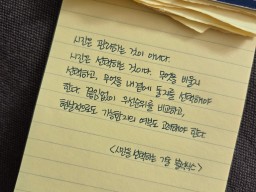 시간은 관리하는 것이 아니다.
시간은 선택하는 것이다. 무엇을 버릴지
선택하고, 무엇을 내 곁에 둘지를 선택해야
한다. 끊임없이 우선순위를 비교하고,
현실적으로 가능한지의 여부도 고려해야 한다
<시간을 선택하는 기술 블럭식스>